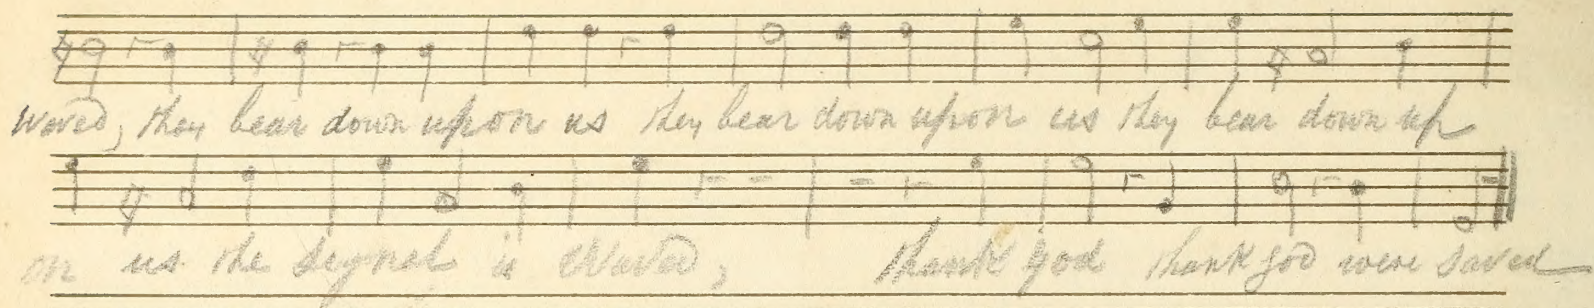 waved, they bear down upon us they bear down upon us they bear down up
on us the signel is Waved, thank god thank god were saved